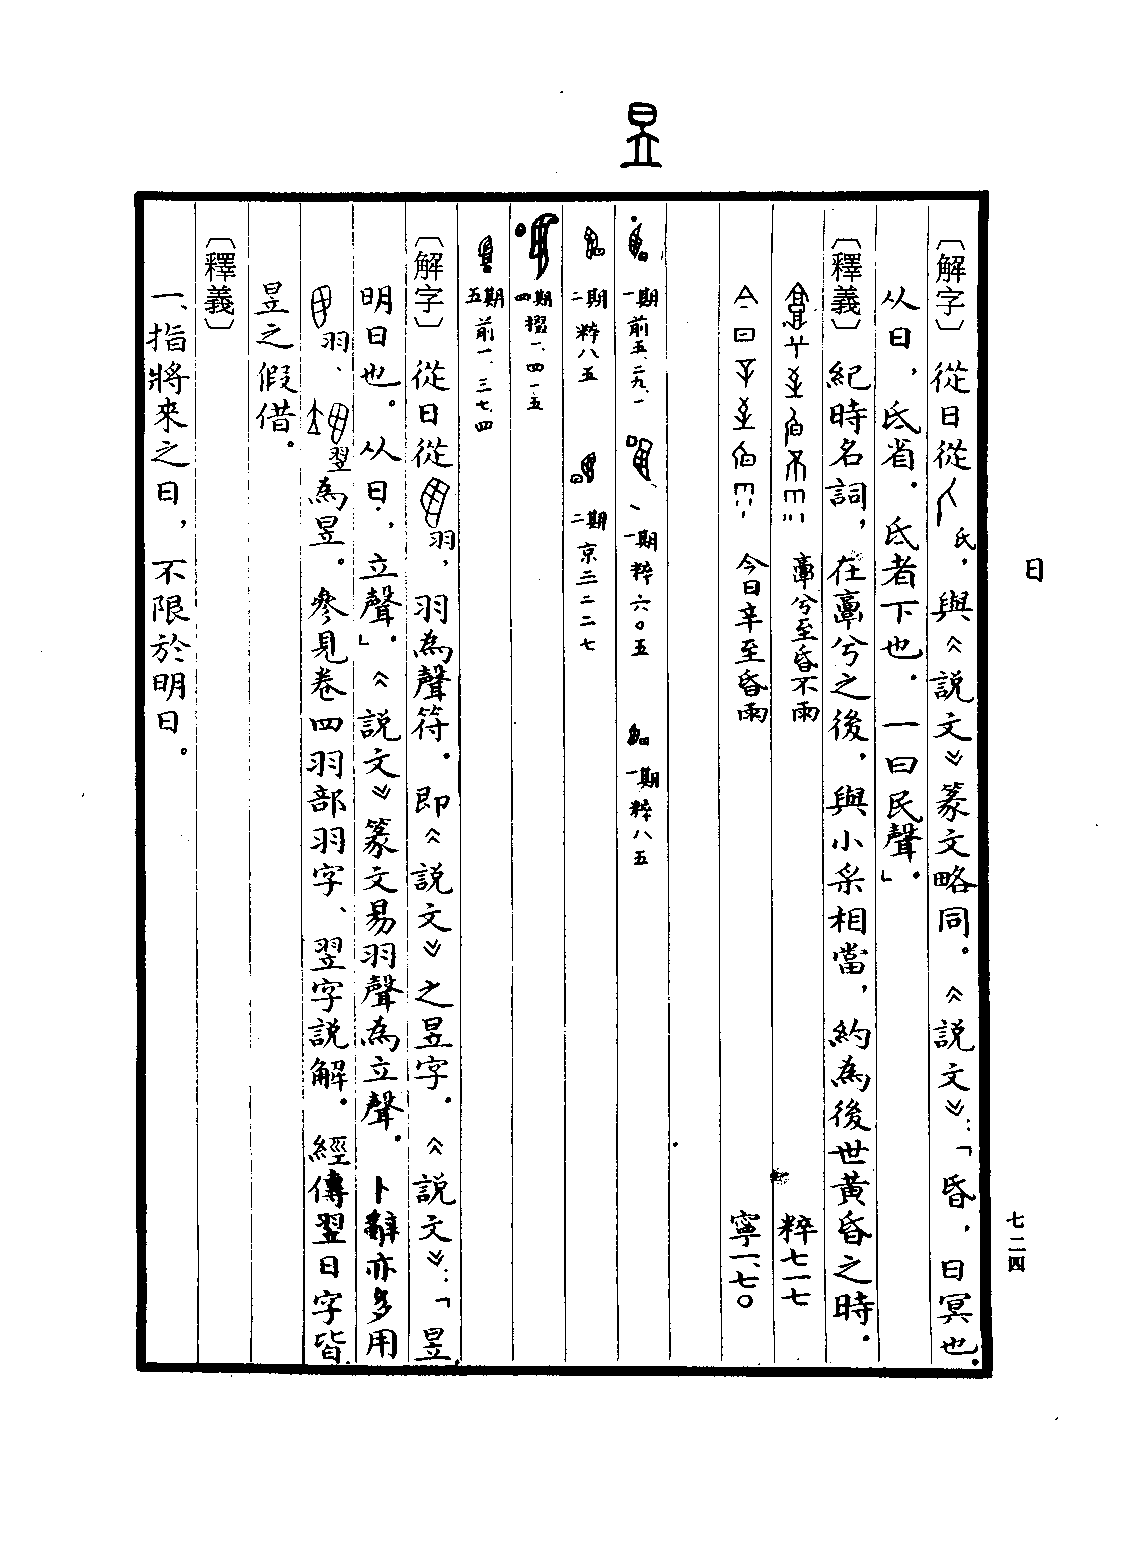 日
七二四
〔解字〕從日從氏，與《説文》篆文略同。《説文》：「昏，日冥也。
从日，氐省。氐者下也。一曰民聲。」
〔釋義〕紀時名詞，在𦎫兮之後，與小采相當，約為後世黃昏之時。
𦎫兮至昏不雨 粹七一七
今日辛至昏雨 寧一、七〇
昱
一期 前五、二九、一 一期 粹六〇五 一期 粹八五
二期 粹八五 二期 京三二二七
四期 掇一、四一五
五期 前一、三七、四
〔解字〕從日從羽，羽為聲符。即《説文》之昱字。《説文》：「昱，
明日也。从日，立聲。」《説文》篆文易羽聲為立聲。卜辭亦多用
羽、翌為昱。參見卷四羽部羽字、翌字説解。經傳翌日字皆
昱之假借。
〔釋義〕
一、指將來之日，不限於明日。